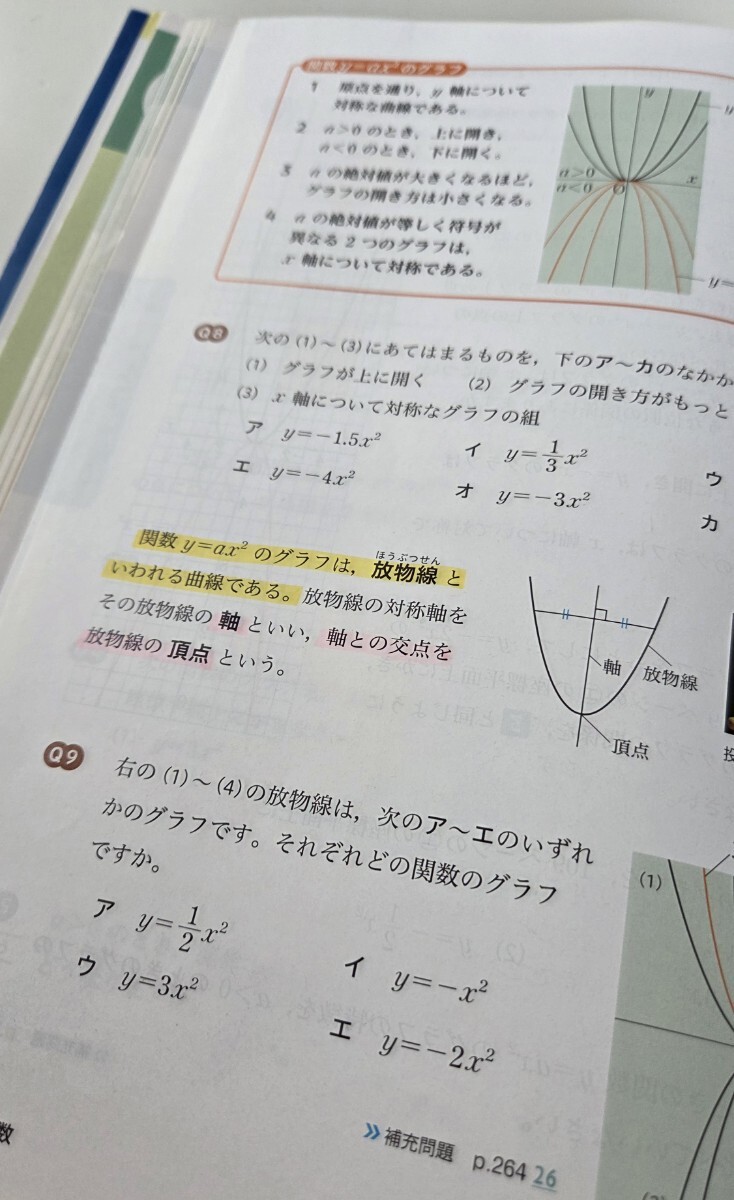 関数 y=ax² のグラフ
1 原点を通り、y 軸について
対称な曲線である。
2 a>0 のとき、上に開き、
a<0 のとき、下に開く。
3 a の絶対値が大きくなるほど、
グラフの開き方は小さくなる。
4 a の絶対値が等しく符号が
異なる 2 つのグラフは、
x 軸について対称である。
y
a>0
a<0
O
x
y=
Q8 次の (1)～(3)にあてはまるものを，下のア～カのなかか
(1) グラフが上に開く (2) グラフの開き方がもっと
(3) x 軸について対称なグラフの組
ア y=-1.5x² イ y=1/3x² ウ
エ y=-4x² オ y=-3x² カ
関数 y=ax² のグラフは，放物線と
ほうぶつせん
いわれる曲線である。放物線の対称軸を
その放物線の 軸 といい，軸との交点を
放物線の 頂点 という。
軸
放物線
頂点
Q9 右の (1)～(4)の放物線は，次のア～エのいずれ
かのグラフです。それぞれどの関数のグラフ
ですか。
ア y=1/2x² イ y=-x²
ウ y=3x² エ y=-2x²
(1)
補充問題 p.264 26
数